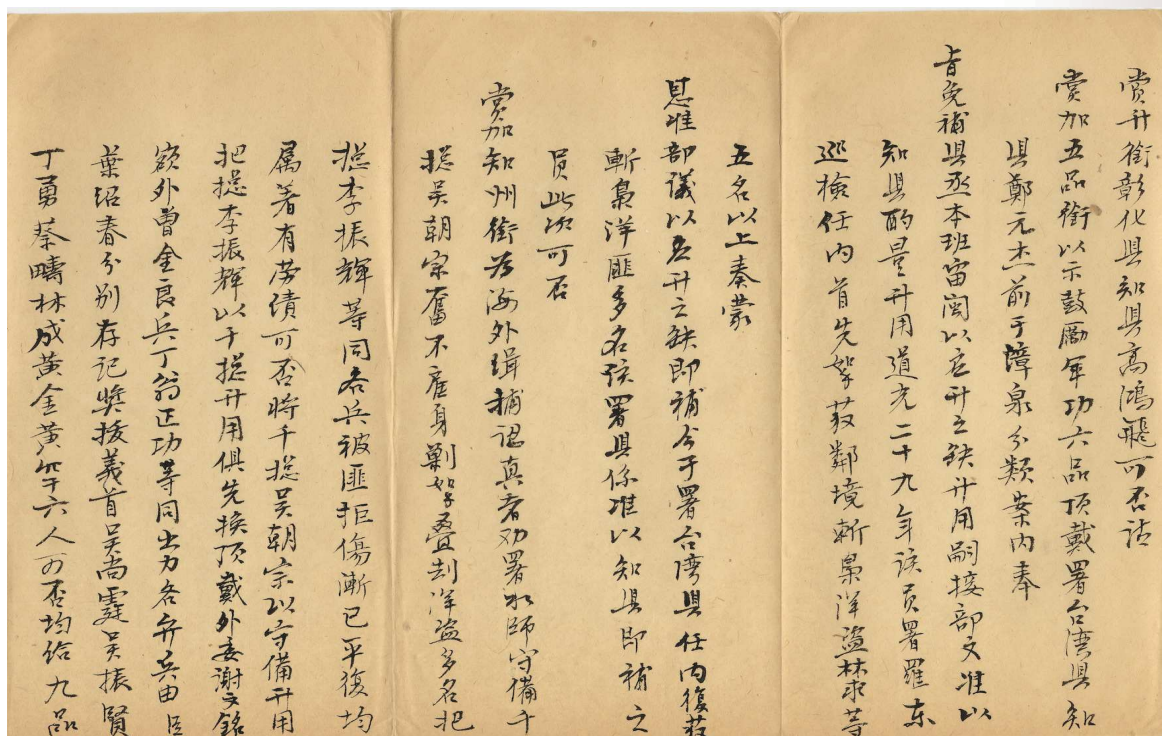 賞升銜彰化县知县高鴻飛可否请
賞加五品銜以示鼓勵軍功六品顶戴署台湾县知
县鄭元杰前于漳泉分類案内奉
旨免補县丞本班留闽以应升之缺升用嗣接部文准以
知县酌量升用道光二十九年该员署羅东
巡檢任内首先拏获鄰境斬梟洋盜林求等
五名以上奏蒙
恩准部議以应升之缺即補今于署台湾县任内復获
斬梟洋匪多名该署县係准以知县即補之
员此次可否
賞加知州銜为海外缉捕認真者劝署水師守備千
摠吴朝宗奮不雇身剿拏叠刦洋盗多名把
摠李振輝等同各兵被匪拒傷漸已平復均
属著有劳績可否將千摠吴朝宗以守備升用
把摠李振輝以千摠升用俱先换顶戴外委謝文銘
额外曾金良兵丁翁正功等同出力各弁兵由臣
葉绍春分别存记獎拔義首吴尚霆吴振賢
丁勇蔡疇林成黄金黄等六人可否均给九品